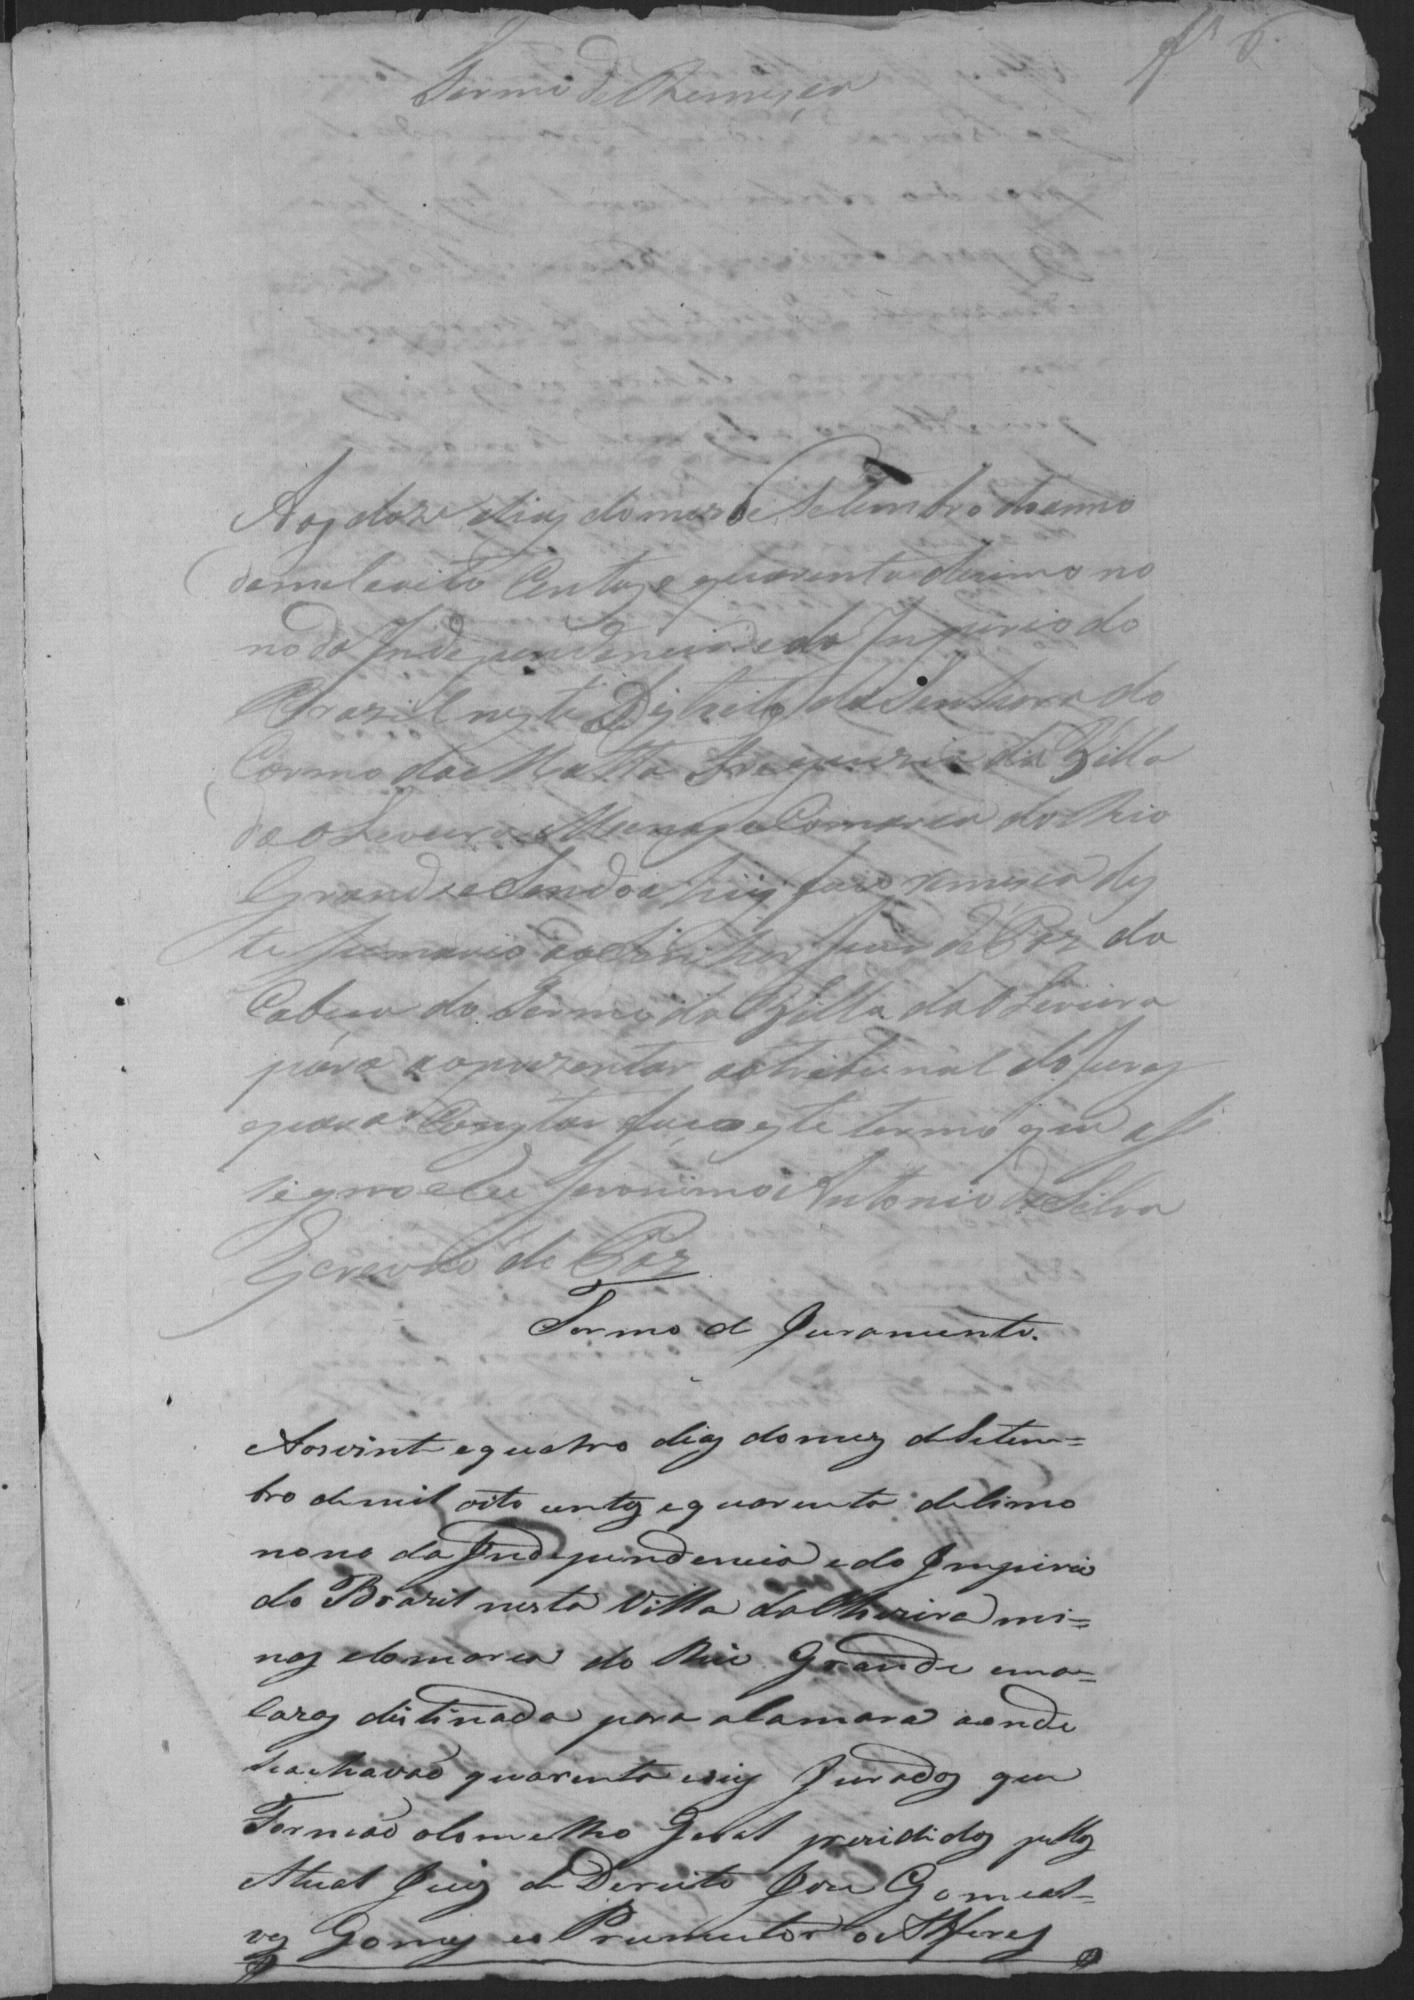 fl 6
Termo de Remeça
Aos doze dias do mez de Setembro do anno
de mil e oito Centos e quarenta desimo no
no da Independencia e do Imperio do
Brazil neste Destrito da Senhora do
Carmo da Matta Freguezia da Villa
da Oliveira Minas e Comarca do Rio
Grande e Sendo ahi faço remeça des
te Sumario ao Juiz de Paz da
Cabeça do Termo da Villa da Oliveira
para aprezentar ao tribunal do Juras
e para Constar faço este termo que asi
signo e Eu Jeronimo Antonio da Silva
Escrevão de Paz
Termo de Juramento.
Aos vint e quatro dias do mez de Setem=
bro de mil oito centos e quarenta desimo
nono da Independencia e do Imperio
do Brazil nesta Villa da Oliveira mi=
nas Comarca do Rio Grande em a=
Cazas distinada para a Camara aonde
se achavão quarenta e seis Jurados que
Formão o Comselho Geral prezididos pello
Atual Juis de Dereito Joze Gonsal=
ves Gomes e o Prumutor o Alferes